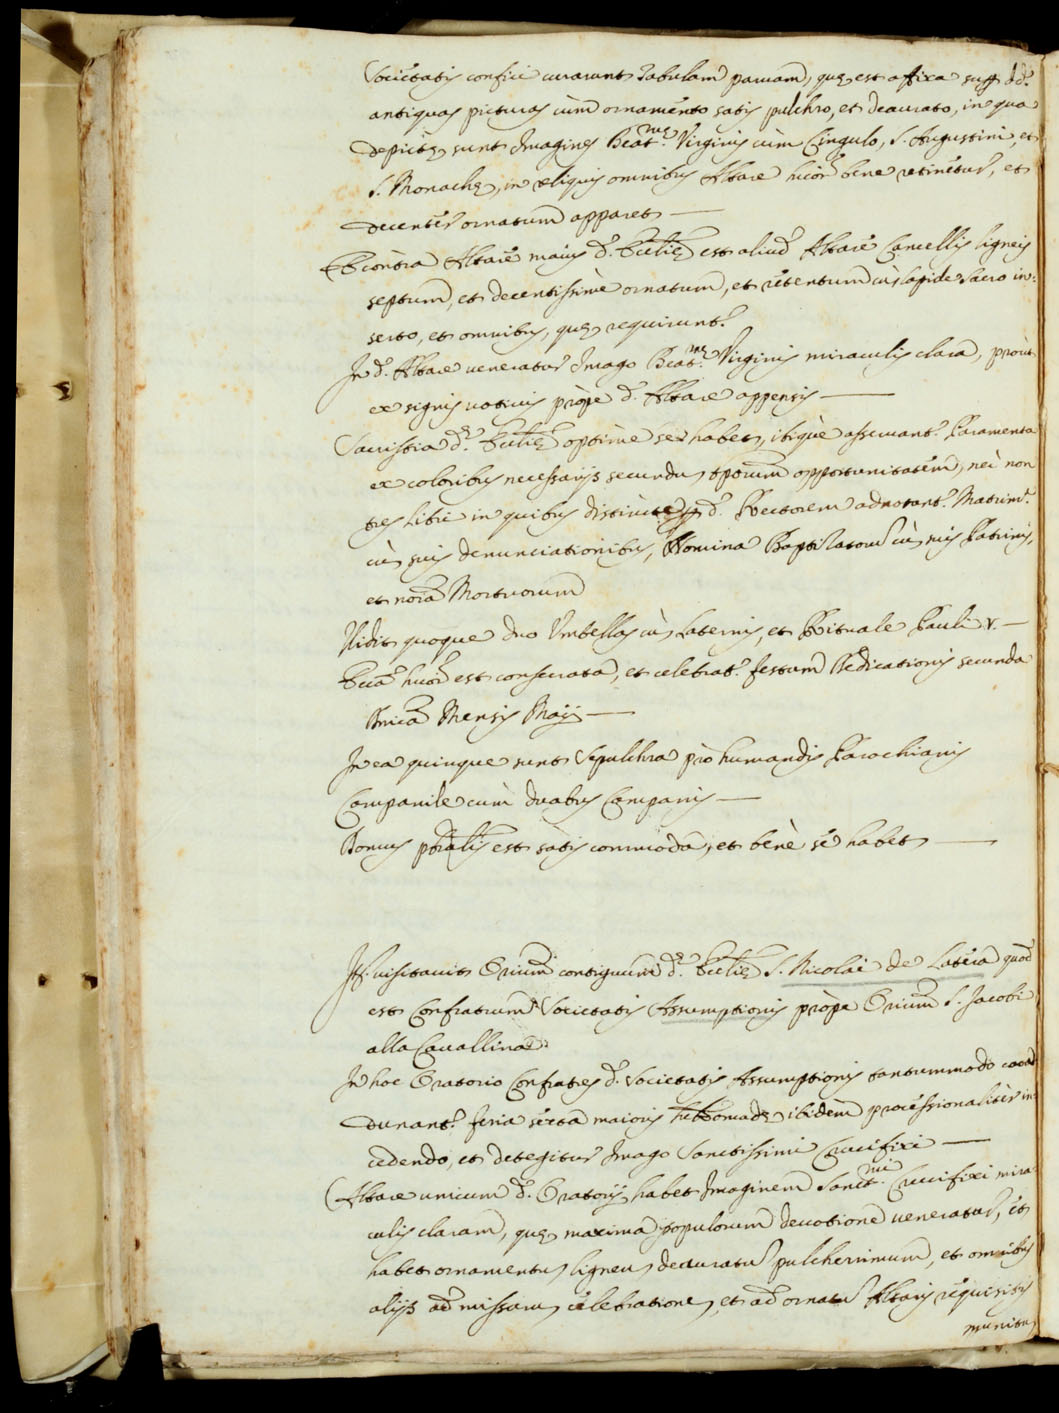 Societatis confici curarunt Tabulam paruam, quę est affixa supp. dd.
antiquas picturas cùm ornamẽto satis pulchro, et deaurato, in qua
depictę sunt Imagines Beat.mę Virginis cùm Cingulo, S. Augustini, et
S. Monachę, in reliquis omnibus Altare hmõi bene retinetur, et
decentèr ornatum apparet —
E contra Altare maius d. Ecclię est aliud Altare Cancellis ligneis
septum, et decentissimè ornatum, et retentum cũ lapide sacro in=
serto, et omnibus, quę requirunt.r
In d. Altare ueneratur Imago Beat.mę Virginis miraculis clara, proùt
ex signis uotiuis propè d. Altare appensis —
Sacristia d.ę Ecclię optimè se habet, ibique asseruant.r Paramenta
ex coloribus necessarijs secundũ tporum opportunitatem, nec non
tres libri in quibus distinctè p d. Rectorem adnotant.r Matrim.a
cũ suis denunciationibus, Nomina Baptizatorũ cũ suis Patrinis,
et noĩa Mortuorum
Vidit quoque duo Vmbellas cũ Laternis, et Rituale Pauli V. —
Eccĩa hmõi est consecrata, et celebrat.r festum Dedicationis secunda
Dnica Mensis Maij —
In ea quinque sunt Sepulchra pro humandis Parochianis
Campanile cum duabus Campanis —
Domus pñalis est satis commoda, et benè se habet —
Itẽ. uisitauit Orium contiguum d.ę Ecclię S. Nicolai de Latera quod
est Confratrum Societatis Assumptionis propè Orium S. Jacobi
alla Cavallina.
In hoc Oratorio Confratres d. Societatis Assumptionis tantummodo coad=
dunant.r feria sexta maioris hebdomadę ibidem processionalitèr in=
cedendo, et detegitur Imago Sanctissimi Crucifixi —
Altare unicum d. Oratorij habet Imaginem Sanct.mi Crucifixi mira=
culis claram, quę maxima populorum deuotione ueneratur, et
habet ornamentũ ligneũ deauratũ pulcherrimum, et omnibus
alijs ad missarũ celebrationẽ, et ad ornatũ Altaris requisitis
munitũ